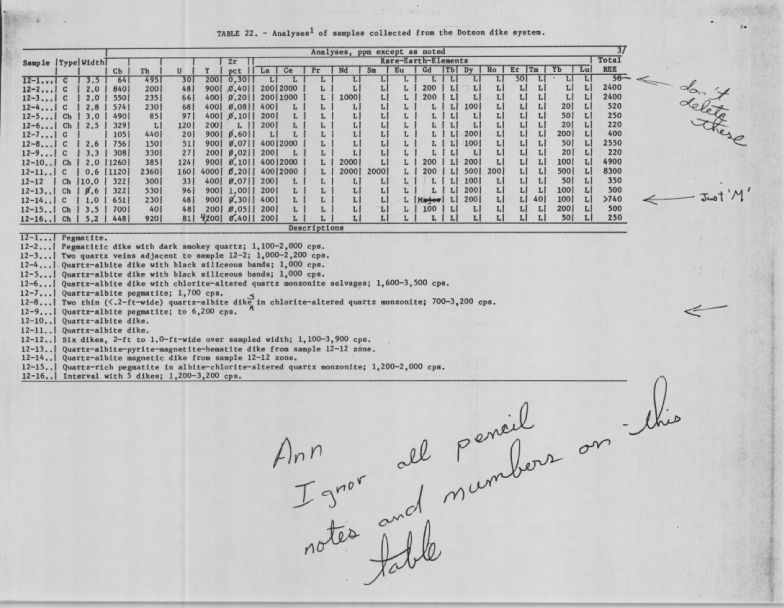 TABLE 22. - Analyses¹ of samples collected from the Dotson dike system.
37
Analyses, ppm except as noted
Zr Rare-Earth-Elements Total
Sample |Type|Width| Cb | Th | U | Y | pct | La | Ce | Pr | Nd | Sm | Eu | Gd | Tb| Dy | Ho | Er | Tm | Yb | Lu| REE
12-1...| C | 3.5 | 64| 495| 30| 200| 0.30| L| L | L | L | L | L | L | L| L| L| 50| L| L| L| 50
12-2...| C | 2.0 | 840| 200| 48| 900| 0.40| 200|2000 | L | L | L | L | 200 | L| L| L| L| L| L| L| 2400
12-3...| C | 2.0 | 550| 235| 66| 400| 0.20| 200|1000 | L | 1000| L | L | 200 | L| L| L| L| L| L| L| 2400
12-4...| C | 2.8 | 574| 230| 68| 400| 0.08| 400| L | L | L | L | L | L | L| 100| L| L| L| 20| L| 520
12-5...| Ch | 3.0 | 490| 85| 97| 400| 0.10| 200| L | L | L | L | L | L | L| L| L| L| L| 50| L| 250
12-6...| Ch | 2.5 | 329| L| 120| 200| L | 200| L | L | L | L | L | L | L| L| L| L| L| 20| L| 220
12-7...| G | | 105| 440| 20| 900| 0.60| L| L | L | L | L | L | L | L| 200| L| L| L| 200| L| 400
12-8...| C | 2.6 | 756| 150| 51| 900| 0.07| 400|2000 | L | L | L | L | L | L| 100| L| L| L| 50| L| 2550
12-9...| C | 3.3 | 308| 330| 27| 200| 0.02| 200| L | L | L | L | L | L | L| L| L| L| L| 20| L| 220
12-10..| Ch | 2.0 |1260| 385| 124| 900| 0.10| 400|2000 | L | 2000| L | L | 200 | L| 200| L| L| L| 100| L| 4900
12-11..| C | 0.6 |1120| 2360| 160| 4000| 0.20| 400|2000 | L | 2000| 2000| L | 200 | L| 500| 200| L| L| 500| L| 8300
12-12 | Ch |10.0 | 322| 300| 33| 400| 0.07| 200| L | L | L | L | L | L | L| 100| L| L| L| 50| L| 350
12-13..| Ch | 0.6 | 322| 530| 96| 900| 1.00| 200| L | L | L | L | L | L | L| 200| L| L| L| 100| L| 500
12-14..| C | 1.0 | 651| 230| 48| 900| 0.30| 400| L | L | L | L | L |Major| L| 200| L| L| 40| 100| L| >740
12-15..| Ch | 3.5 | 700| 40| 48| 200| 0.05| 200| L | L | L | L | L | 100 | L| L| L| L| L| 200| L| 500
12-16..| Ch | 5.2 | 448| 920| 81| 4200| 0.40| 200| L | L | L | L | L | L | L| L| L| L| L| 50| L| 250
don't
delete
these
Just 'M'
Descriptions
12-1...| Pegmatite.
12-2...| Pegmatitic dike with dark smokey quartz; 1,100-2,000 cps.
12-3...| Two quartz veins adjacent to sample 12-2; 1,000-2,200 cps.
12-4...| Quartz-albite dike with black siliceous bands; 1,000 cps.
12-5...| Quartz-albite dike with black siliceous bands; 1,000 cps.
12-6...| Quartz-albite dike with chlorite-altered quartz monzonite selvages; 1,600-3,500 cps.
12-7...| Quartz-albite pegmatite; 1,700 cps.
12-8...| Two thin (<.2-ft-wide) quartz-albite dikes in chlorite-altered quartz monzonite; 700-3,200 cps.
12-9...| Quartz-albite pegmatite; to 6,200 cps.
12-10..| Quartz-albite dike.
12-11..| Quartz-albite dike.
12-12..| Six dikes, 2-ft to 1.0-ft-wide over sampled width; 1,100-3,900 cps.
12-13..| Quartz-albite-pyrite-magnetite-hematite dike from sample 12-12 zone.
12-14..| Quartz-albite magnetic dike from sample 12-12 zone.
12-15..| Quartz-rich pegmatite in albite-chlorite-altered quartz monzonite; 1,200-2,000 cps.
12-16..| Interval with 5 dikes; 1,200-3,200 cps.
Ann
Ignor all pencil
notes and numbers on this
table